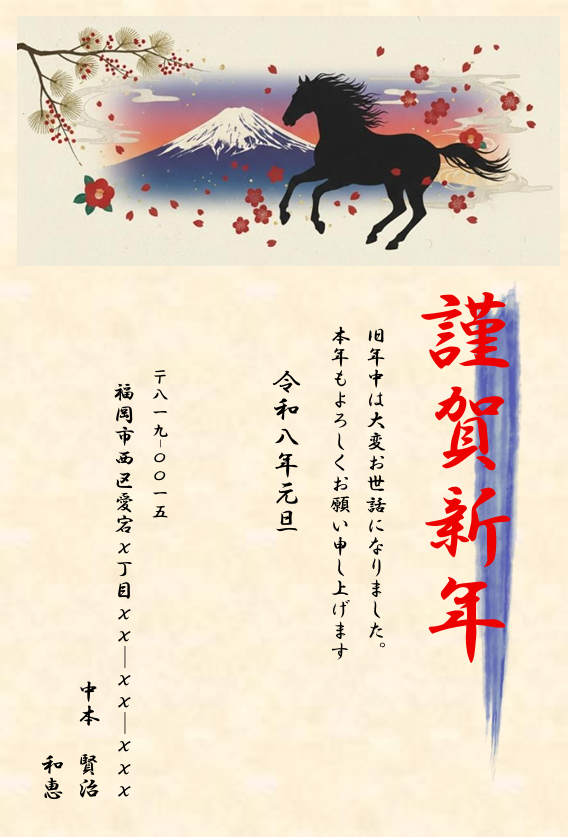 謹賀新年
旧年中は大変お世話になりました。
本年もよろしくお願い申し上げます
令和八年元旦
〒八一九-〇〇一五
福岡市西区愛宕x丁目xx―xx―xxx
中本 賢治
和恵